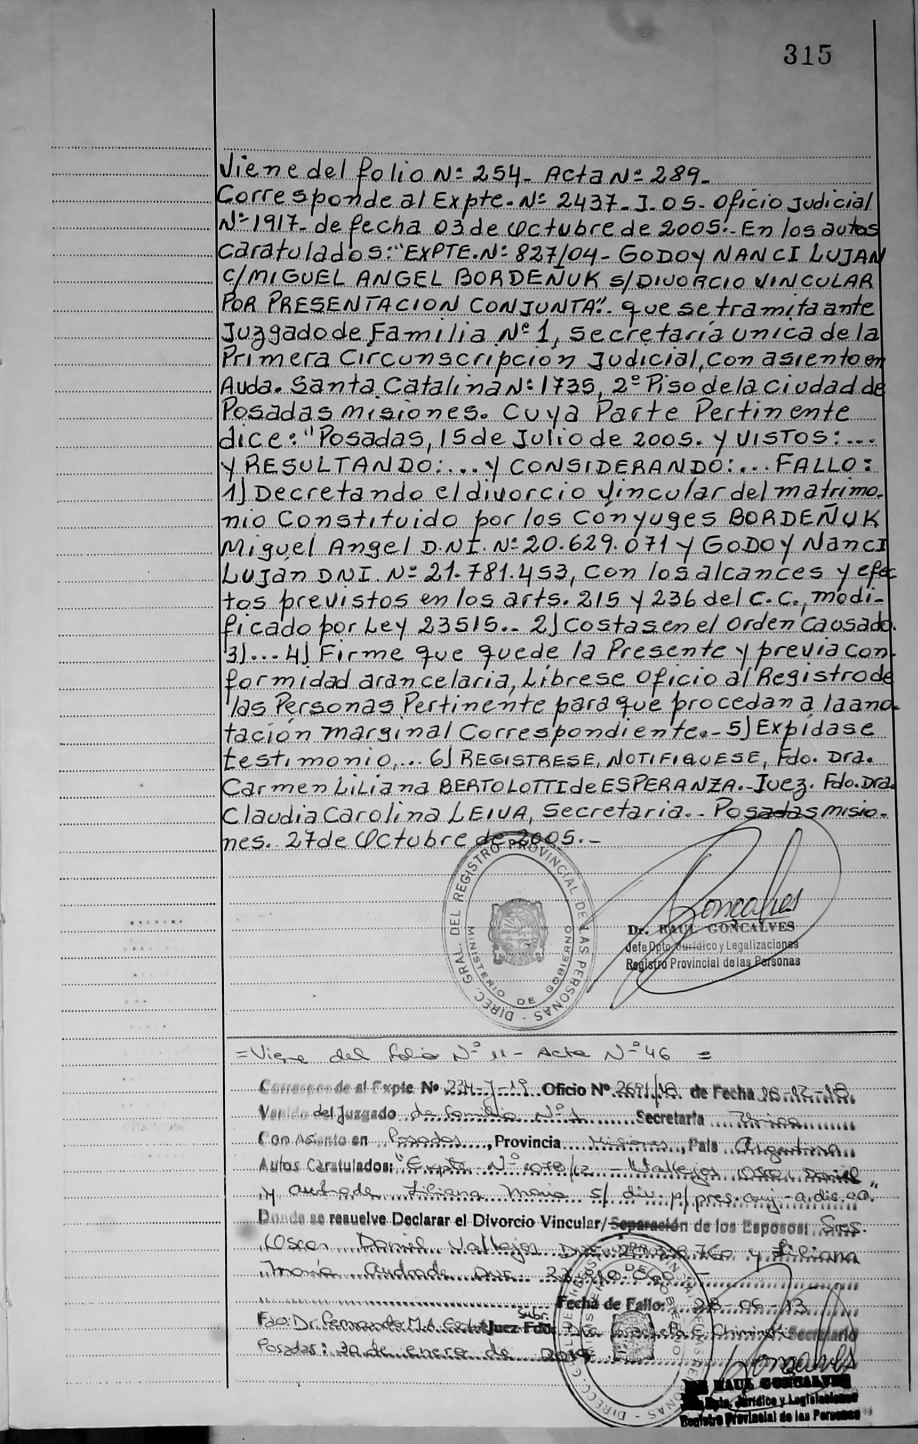 315
Viene del folio Nº 254- Acta Nº 289-
Corresponde al Expte. Nº 2437-J-05- Oficio Judicial
Nº 1917- de fecha 03 de Octubre de 2005.- En los autos
caratulados: "EXPTE. Nº 827/04 - GODOY NANCI LUJAN
C/MIGUEL ANGEL BORDEÑUK S/DIVORCIO VINCULAR
POR PRESENTACION CONJUNTA". que se tramita ante
Juzgado de Familia Nº 1, Secretaría unica de la
Primera Circunscripción Judicial, con asiento en
Avda. Santa Catalina Nº 1735, 2º Piso de la ciudad de
Posadas Misiones. Cuya Parte Pertinente
dice: "Posadas, 15 de Julio de 2005. y VISTOS:...
y RESULTANDO:... y CONSIDERANDO:... FALLO:
1) Decretando el divorcio vincular del matrimo-
nio Constituido por los Cónyuges BORDEÑUK
Miguel Angel D.N.I. Nº 20.629.071 y GODOY Nanci
LUJAN DNI. Nº 21.781.453, con los alcances y efec
tos previstos en los arts. 215 y 236 del C.C., modi-
ficado por Ley 23515.- 2) Costas en el Orden Causado.
3)... 4) Firme que quede la Presente y previa con-
formidad arancelaria, Líbrese Oficio al Registro de
las Personas Pertinente para que procedan a la ano-
tación marginal Correspondiente.- 5) Expídase
testimonio,... 6) REGISTRESE, NOTIFIQUESE, Fdo. Dra.
Carmen Liliana BERTOLOTTI de ESPERANZA.- Juez. Fdo. Dra.
Claudia Carolina LEIVA, Secretaria.- Posadas misio-
nes. 27 de Octubre de 2005.-
DIREC. GRAL. DEL REGISTRO PROVINCIAL DE LAS PERSONAS -
MINISTERIO DE GOBIERNO
Goncalves
Dr. RAUL GONCALVES
Jefe Dpto Jurídico y Legalizaciones
Registro Provincial de las Personas
=Viene del folio Nº 11 - Acta Nº 46 =
Corresponde al Expte Nº 234-J-19 Oficio Nº 2691/18 de Fecha
Venido del Juzgado de familia Nº 1 Secretaría Única
Con Asiento en Posadas, Provincia Misiones, País Argentina
Autos Caratulados: "Expte. Nº 1070/12 - Vallejos Oscar Daniel
y Andrade Liliana Maria s/ div. p/ pres. conj.
Donde se resuelve Declarar el Divorcio Vincular/Separación de los Esposos: Sres.
Oscar Daniel Vallejos y Liliana
María Andrade
Fecha de Fallo: 28 06 13
Fdo: Dr. Juez Fdo: Dra. Secretario
Posadas: 30 de enero de 2019
Goncalves
Dr. RAUL GONCALVES
Jefe Dpto. Jurídico y Legalizaciones
Registro Provincial de las Personas